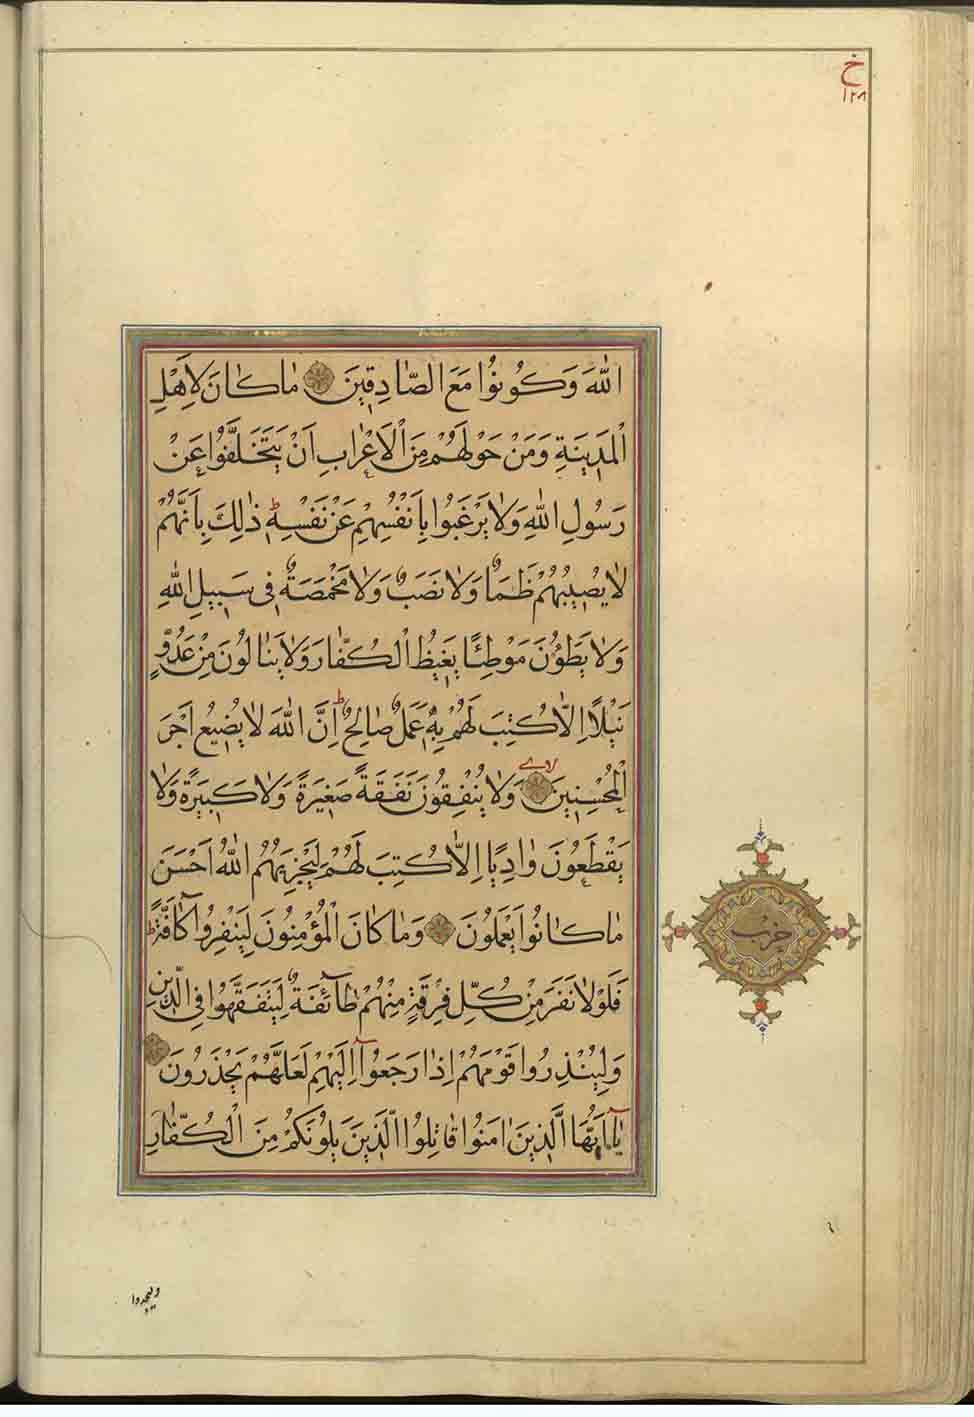 خ
١٢٨
اللهَ وَكُونُوا مَعَ الصَّادِقِينَ مٰا كٰانَ لِاَهْلِ
الْمَدِينَةِ وَمَنْ حَوْلَهُمْ مِنَ الْاَعْرٰابِ اَنْ يَتَخَلَّفُوا عَنْ
رَسُولِ اللهِ وَلٰا يَرْغَبُوا بِاَنْفُسِهِمْ عَنْ نَفْسِهِ ط ذٰلِكَ بِاَنَّهُمْ
لٰا يُصِيبُهُمْ ظَمَاٌ وَلٰا نَصَبٌ وَلٰا مَخْمَصَةٌ فِى سَبِيلِ اللهِ
وَلٰا يَطَؤُنَ مَوْطِئًا يَغِيظُ الْكُفّٰارَ وَلٰا يَنٰالُونَ مِنْ عَدُوٍّ
نَيْلًا اِلّٰا كُتِبَ لَهُمْ بِهِ عَمَلٌ صٰالِحٌ ط اِنَّ اللهَ لٰا يُضِيعُ اَجْرَ
الْمُحْسِنِينَ لاى وَلٰا يُنْفِقُونَ نَفَقَةً صَغِيرَةً وَلٰا كَبِيرَةً وَلٰا
يَقْطَعُونَ وٰادِيًا اِلّٰا كُتِبَ لَهُمْ لِيَجْزِيَهُمُ اللهُ اَحْسَنَ
مٰا كٰانُوا يَعْمَلُونَ وَمٰا كٰانَ الْمُؤْمِنُونَ لِيَنْفِرُوا كٰآفَّةً ط
فَلَوْلٰا نَفَرَ مِنْ كُلِّ فِرْقَةٍ مِنْهُمْ طٰآئِفَةٌ لِيَتَفَقَّهُوا فِى الدِّينِ
وَلِيُنْذِرُوا قَوْمَهُمْ اِذٰا رَجَعُوآ اِلَيْهِمْ لَعَلَّهُمْ يَحْذَرُونَ
يٰآ اَيُّهَا الَّذِينَ اٰمَنُوا قٰاتِلُوا الَّذِينَ يَلُونَكُمْ مِنَ الْكُفّٰارِ
حزب
وليجدوا